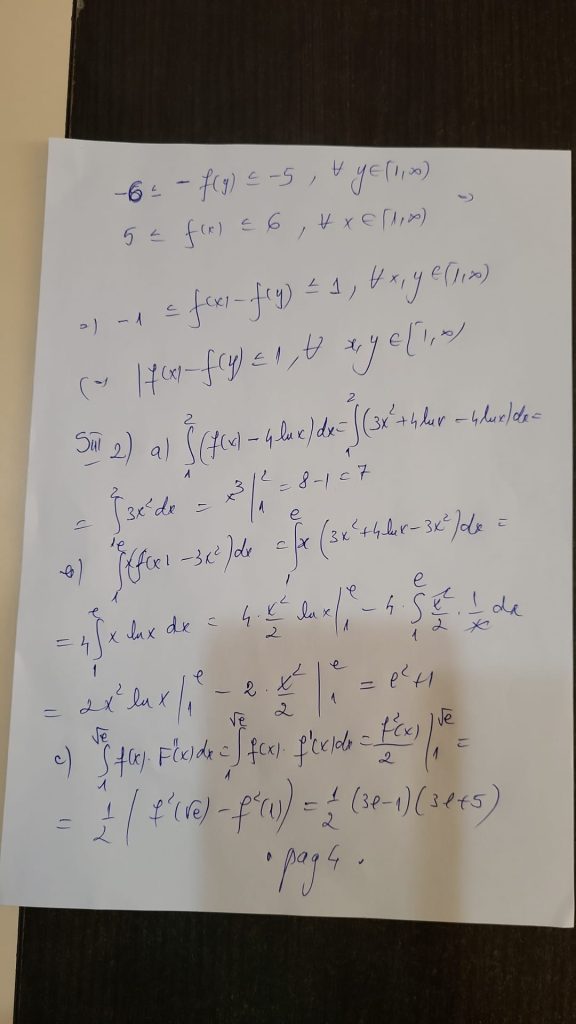 -6 ≤ -f(y) ≤ -5 , ∀ y∈[1,∞)
5 ≤ f(x) ≤ 6 , ∀ x∈[1,∞) ⇒
⇒ -1 ≤ f(x)-f(y) ≤ 1, ∀ x,y∈[1,∞)
(⇒ |f(x)-f(y)| ≤ 1, ∀ x,y∈[1,∞)
SIII 2) a) ∫₁² (f(x) - 4lnx)dx = ∫₁² (3x²+4lnx - 4lnx)dx =
= ∫₁² 3x²dx = x³|₁² = 8-1=7
b) ∫₁ᵉ x(f(x) - 3x²)dx = ∫₁ᵉ x (3x²+4lnx-3x²)dx =
= 4∫₁ᵉ x lnx dx = 4·x²/2 lnx|₁ᵉ - 4·∫₁ᵉ x²/2 · 1/x dx
= 2x² lnx|₁ᵉ - 2·x²/2|₁ᵉ = e²+1
c) ∫₁^√e f(x)·F''(x)dx = ∫₁^√e f(x)·f'(x)dx = f²(x)/2 |₁^√e =
= 1/2 (f²(√e) - f²(1)) = 1/2 (3e-1)(3e+5)
· pag 4 .